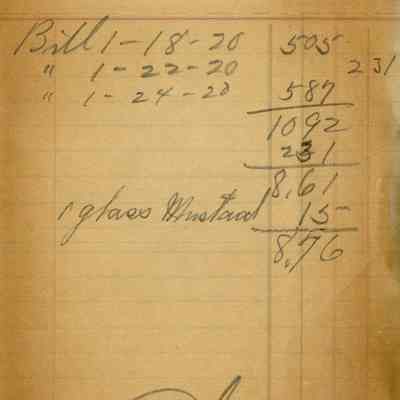 Bill 1-18-20 505
" 1-22-20 231
" 1-24-20 587
1092
231
8,61
1 glass Mustard 15
8,76